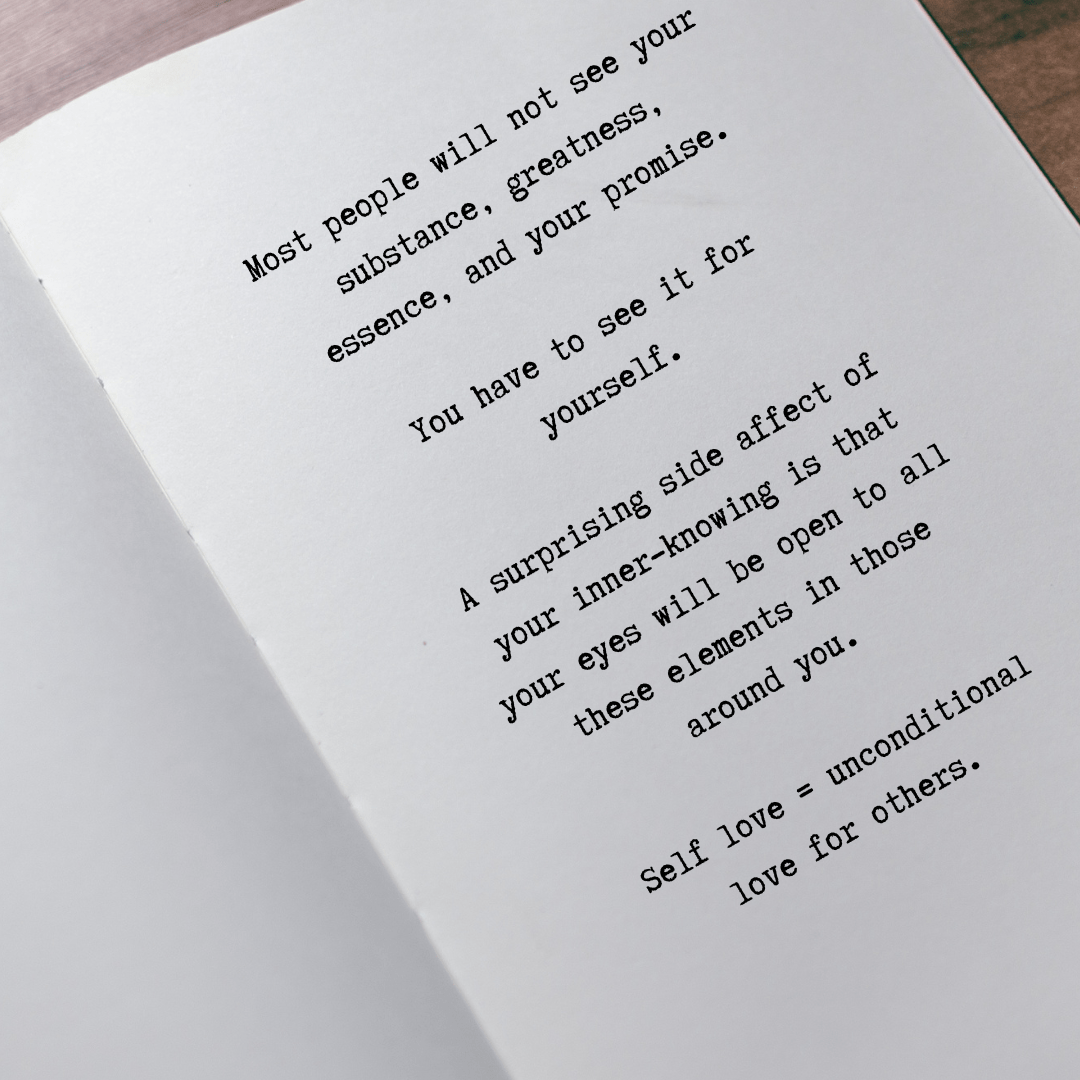 Most people will not see your
substance, greatness,
essence, and your promise.
You have to see it for
yourself.
A surprising side affect of
your inner-knowing is that
your eyes will be open to all
these elements in those
around you.
Self love = unconditional
love for others.